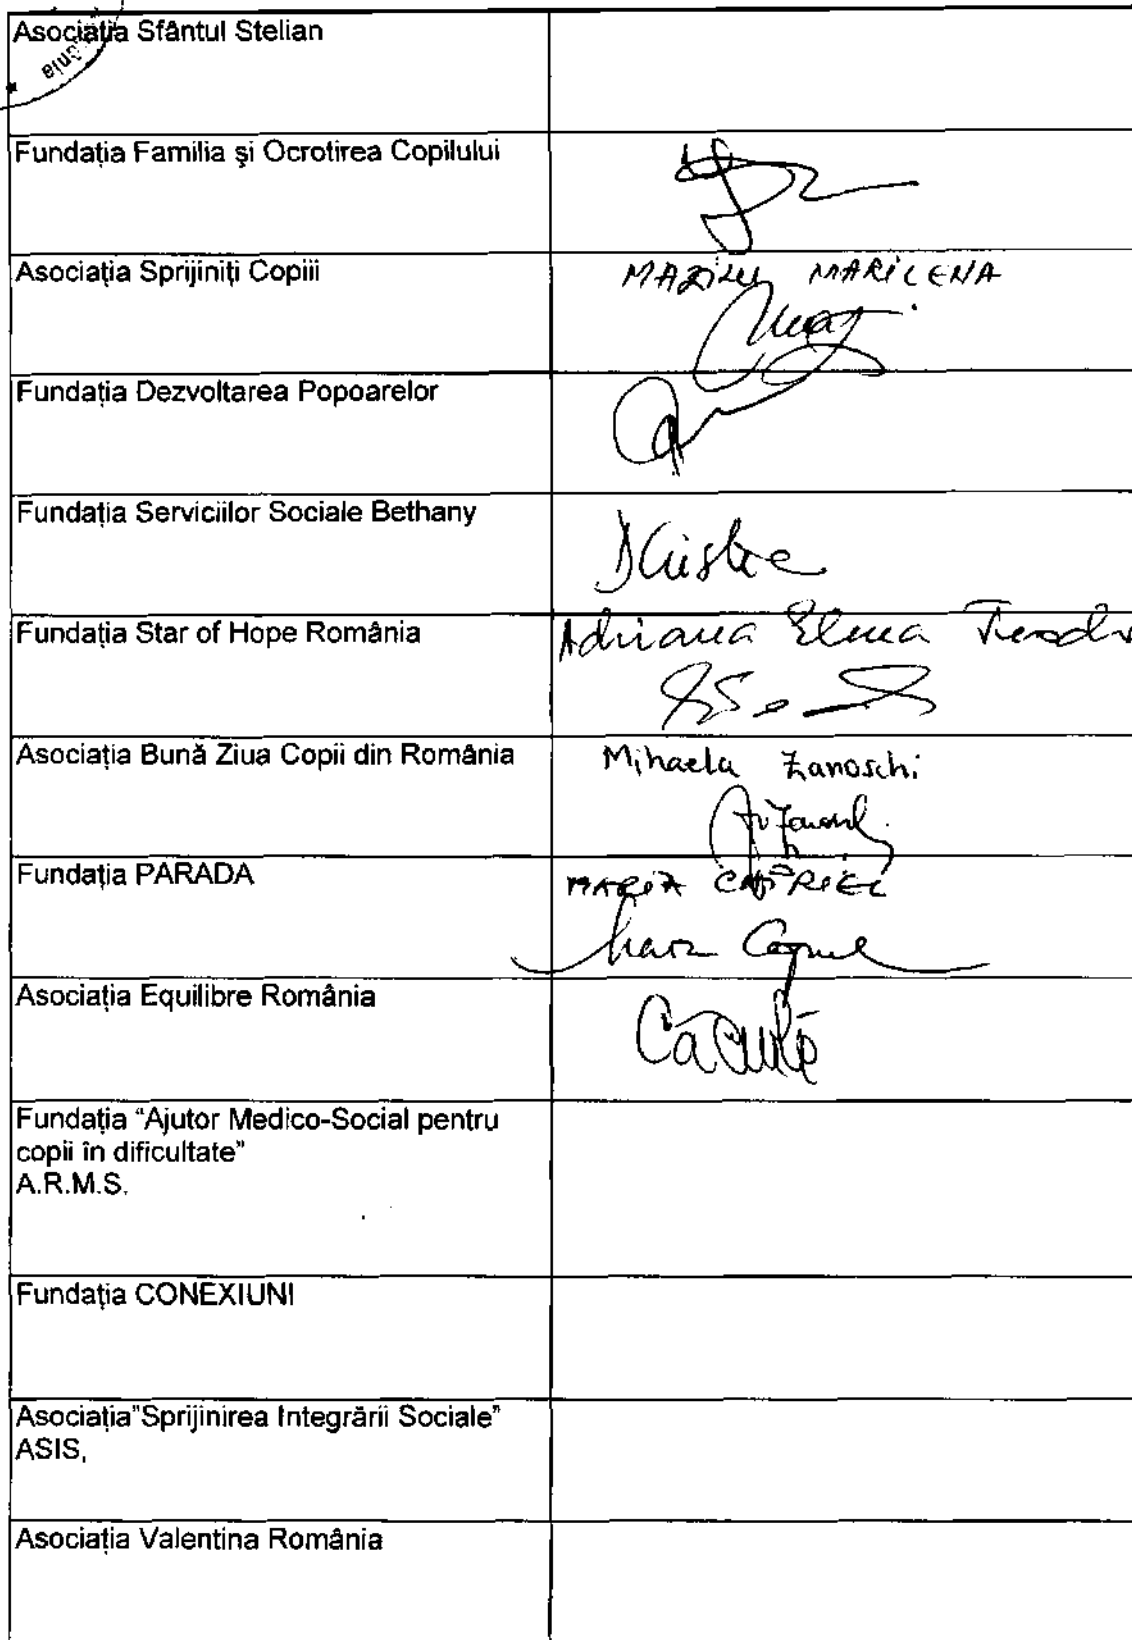 Asociația Sfântul Stelian
Fundația Familia și Ocrotirea Copilului
Asociația Sprijiniți Copiii
MARILENA
Fundația Dezvoltarea Popoarelor
Fundația Serviciilor Sociale Bethany
Fundația Star of Hope România
Adriana Elena
Asociația Bună Ziua Copii din România
Mihaela Zanoschi
Fundația PARADA
Asociația Equilibre România
Fundația “Ajutor Medico-Social pentru
copii în dificultate”
A.R.M.S.
Fundația CONEXIUNI
Asociația”Sprijinirea Integrării Sociale”
ASIS,
Asociația Valentina România